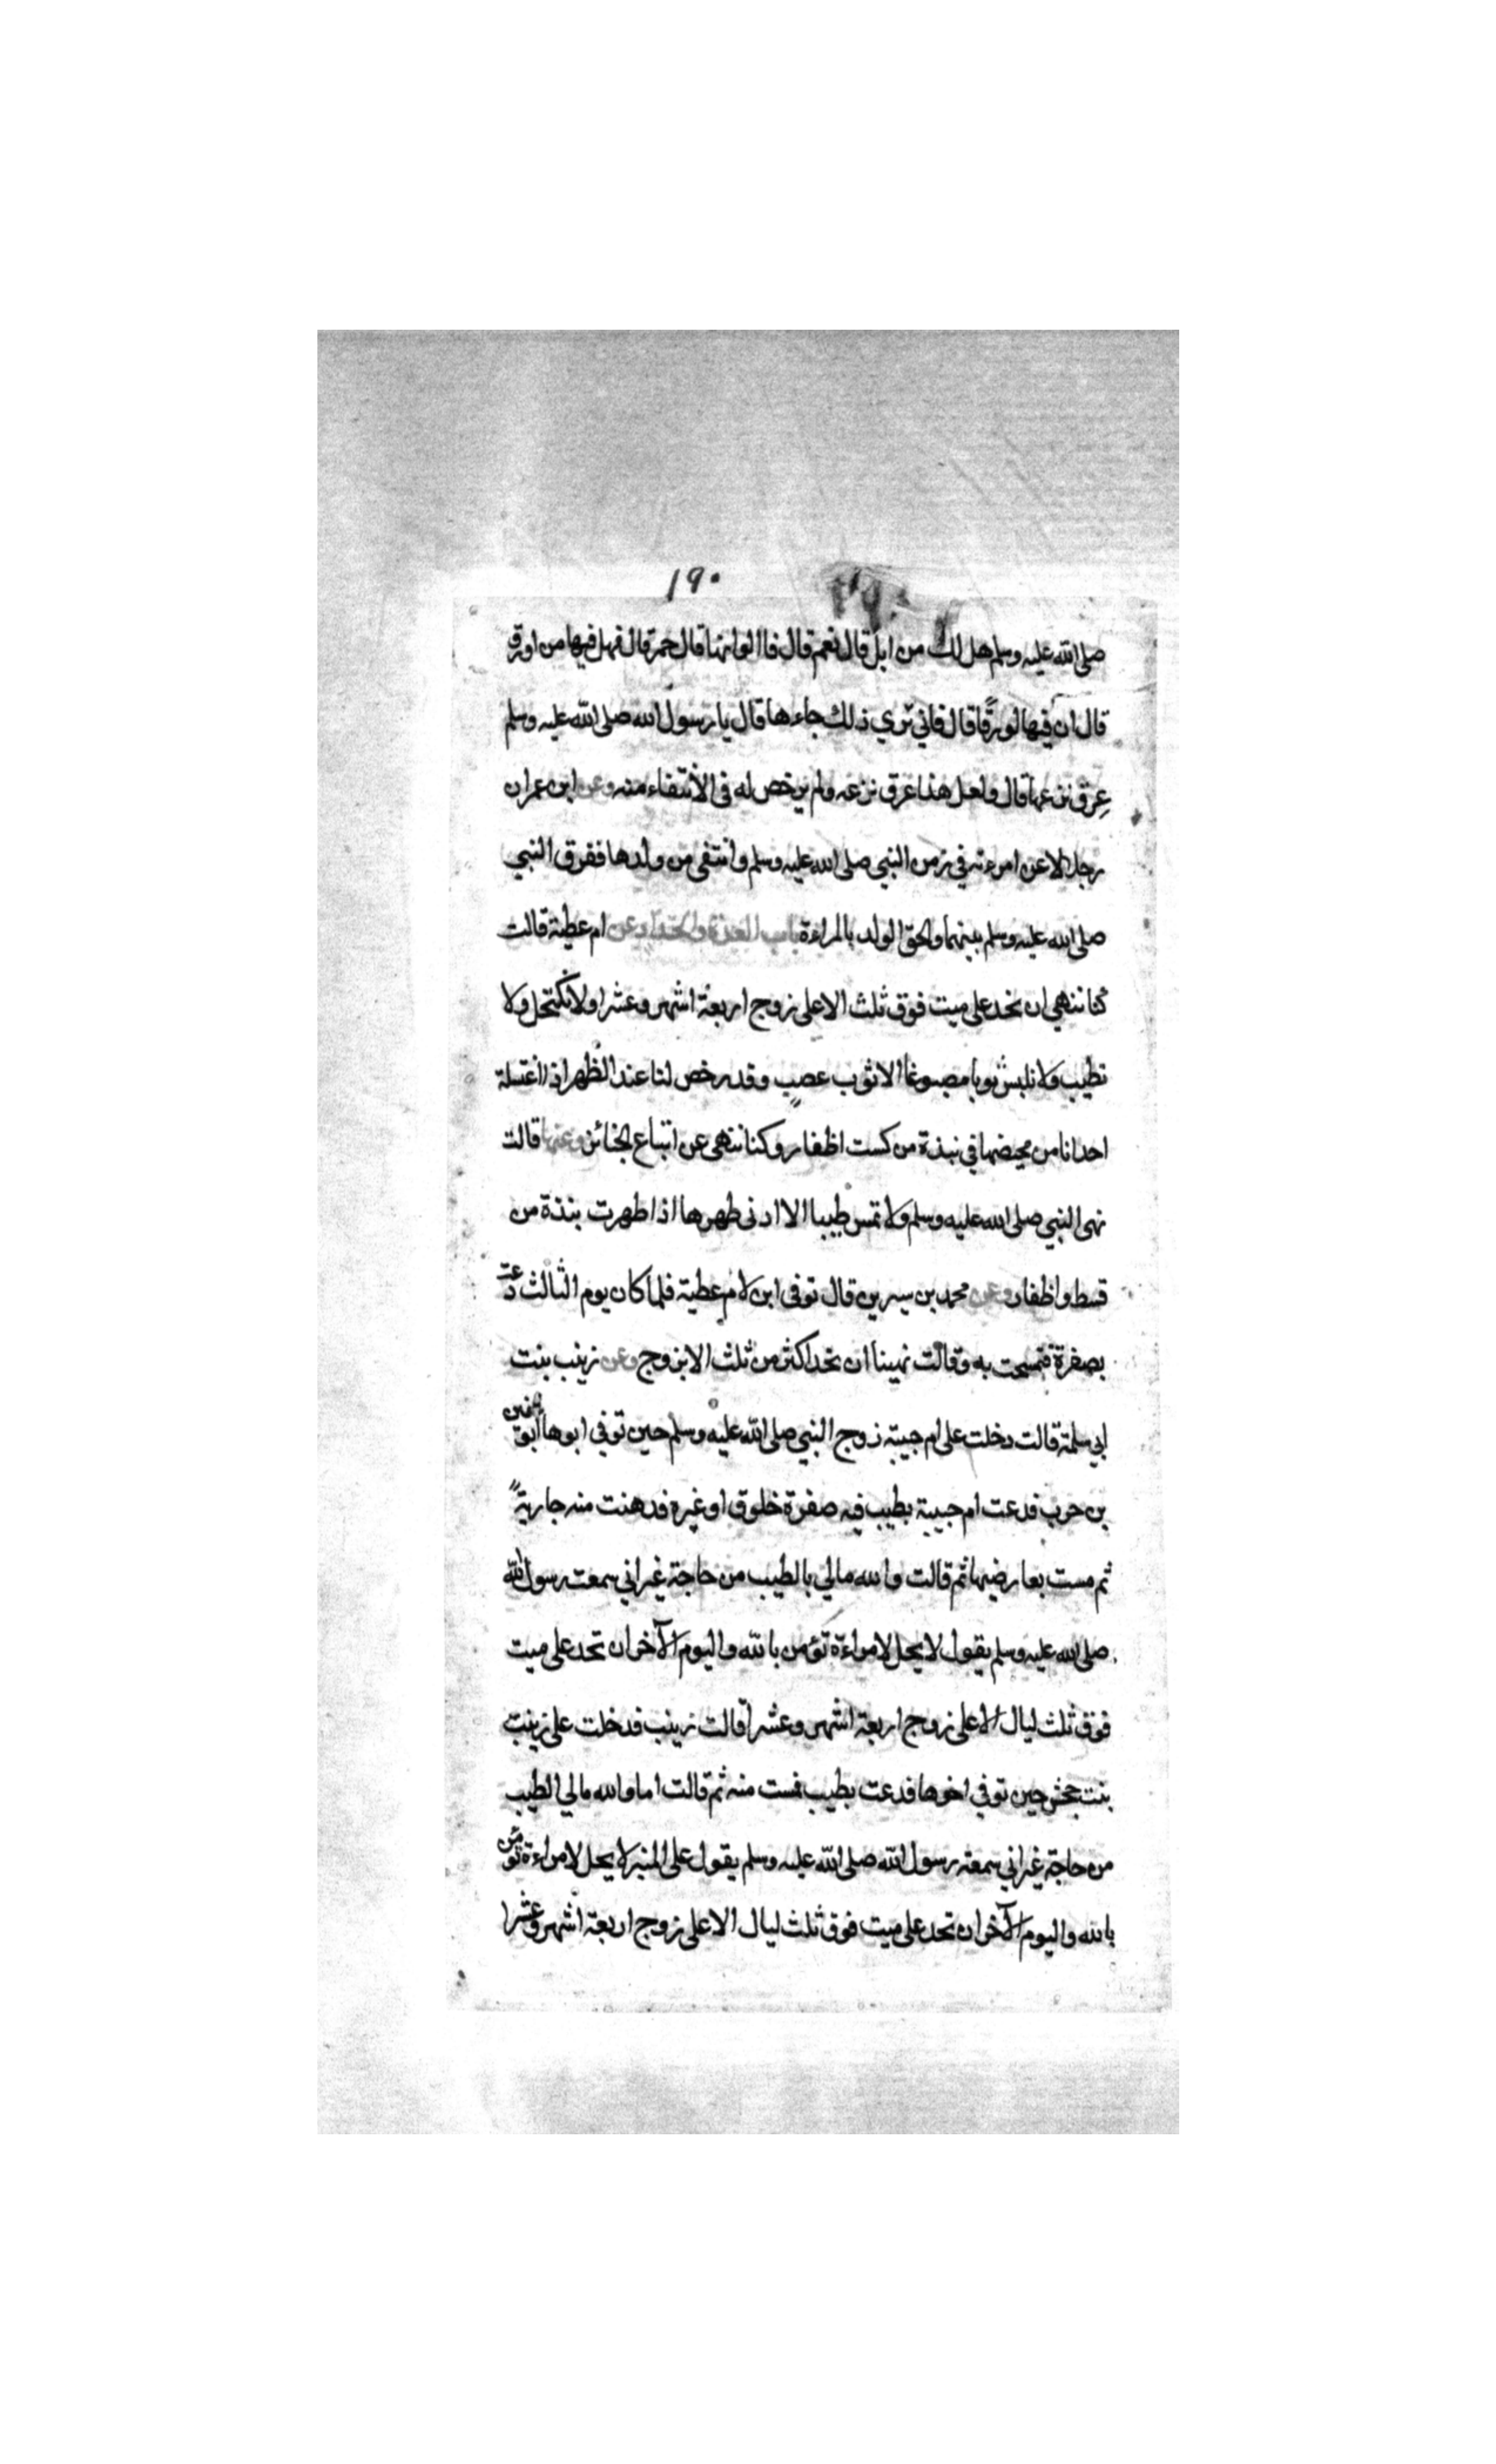 ١٩٠
صلى الله عليه وسلم هل لك من ابل قال نعم قال فما الوانها قال حمر قال فهل فيها من اورق
قال ان فيها لورقًا قال فاني ترى ذلك جاءها قال يا رسول الله صلى الله عليه وسلم
عِرق نزعها قال ولعل هذا عرق نزعه ولم يرخص له في الانتفاء منه وعن ابن عمر ان
رجل لاعن امرءته في زمن النبي صلى الله عليه وسلم وانتفى من ولدها ففرق النبي
صلى الله عليه وسلم بينهما والحق الولد بالمراءة باب العدة والاحداد وعن ام عطية قالت
كنا ننهى ان نحد على ميت فوق ثلث الا على زوج اربعة اشهر وعشرا ولا نكتحل ولا
نطيب ولا نلبس ثوبا مصبوغا الا ثوب عصب وقد رخص لنا عند الظهر اذا اغتسلة
احدانا من محيضها في نبذة من كست اظفار وكنا ننهى عن اتباع الجنائز وعنها قالت
نهى النبي صلى الله عليه وسلم ولا تمس طيبا الا ادنى طهرها اذا طهرت بنذة من
قسط واظفار وعن محمد بن سيرين قال توفى ابن لام عطية فلما كان يوم الثالث دعت
بصفرة فتمسحت به وقالت نهينا ان نحد اكثر من ثلث الا بزوج وعن زينب بنت
ابي سلمة قالت دخلت على ام حبيبة زوج النبي صلى الله عليه وسلم حين توفى ابوها ابو سفين
بن حرب فدعت ام حبيبة بطيب فيه صفرة خلوق او غيره فدهنت منه جارية
ثم مست بعارضيها ثم قالت والله مالي بالطيب من حاجة غير اني سمعت رسول الله
صلى الله عليه وسلم يقول لا يحل لامراءة تؤمن بالله واليوم الآخر ان تحد على ميت
فوق ثلث ليال الا على زوج اربعة اشهر وعشرا قالت زينب فدخلت على زينب
بنت جحش حين توفى اخوها فدعت بطيب فمست منه ثم قالت اما والله مالي الطيب
من حاجة غير اني سمعته رسول الله صلى الله عليه وسلم يقول على المنبر لا يحل لامراءة تؤمن
بالله واليوم الآخر ان تحد على ميت فوق ثلث ليال الا على زوج اربعة اشهر وعشرا